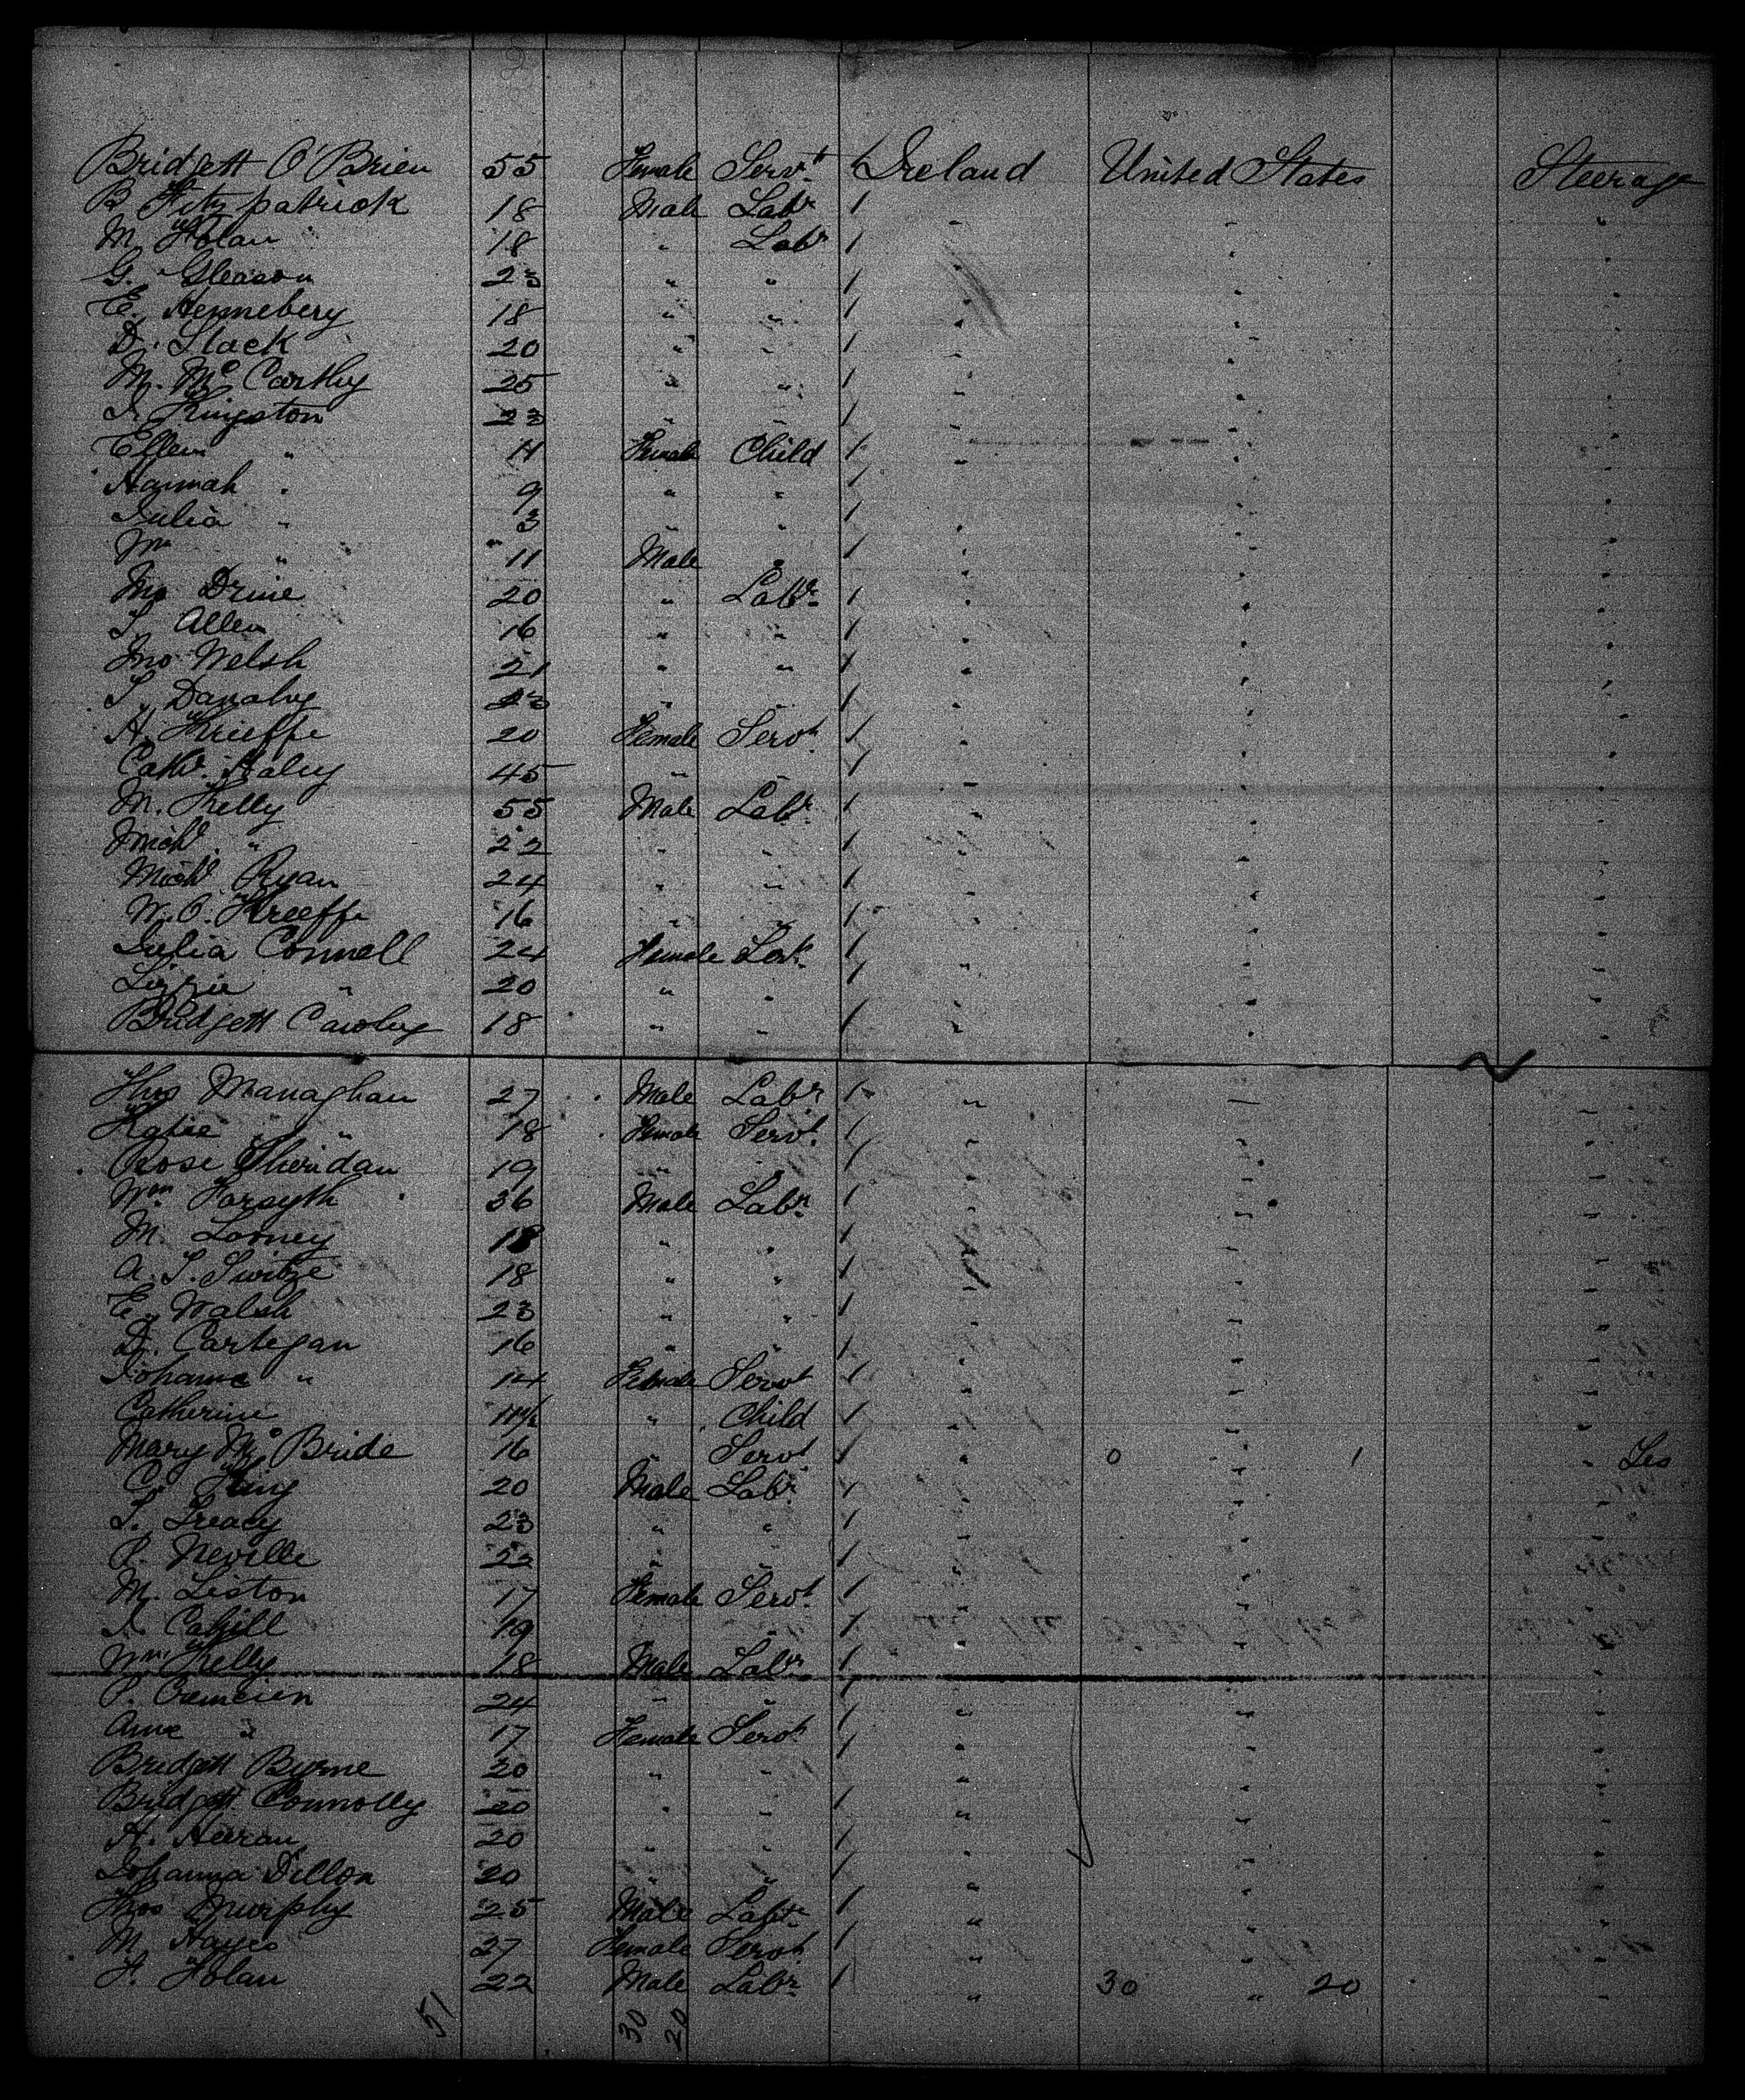 Bridgett O'Brien 55 Female Servt Ireland United States Steerage
B Fitzpatrick 18 Male Labr / " " "
M. Folan 18 " Labr / " " "
G. Gleason 23 " " / " " "
E. Hennebery 18 " " / " " "
D. Slack 20 " " / " " "
M. Mc Carthy 25 " " / " " "
J. Kingston 23 " " / " " "
Ellen " 11 Female Child / " " "
Hannah " 9 " " / " " "
Julia " 3 " " / " " "
Wm " 11 Male " / " " "
Drine 20 " Labr / " " "
S. Allen 16 " " / " " "
Jno Welsh 21 " " / " " "
S. Danahy 23 " " / " " "
H. Krieffe 20 Female Servt / " " "
Cath. Haley 45 " " / " " "
M. Kelly 55 Male Labr / " " "
Michl " 22 " " / " " "
Michl Ryan 24 " " / " " "
W. O. Kreeffe 16 " " / " " "
Julia Connell 24 Female / " " "
Lizzie " 20 " " / " " "
Bridgett Cawley 18 " " / " " "
Thos Managhan 27 Male Labr / " " "
Katie " 18 Female Servt / " " "
Rose Sheridan 19 " " / " " "
Wm Forsyth 36 Male Labr / " " "
M. Lorney 18 " " / " " "
A. S. Switze 18 " " / " " "
E. Walsh 23 " " / " " "
D. Cartegan 16 " " / " " "
Johanna " 14 Female Servt / " " "
Catherine " Child / " " "
Mary Mc Bride 16 " Servt / " 0 " 1 "
C. King 20 Male Labr / " " "
S. Treacy 23 " " / " " "
P. Neville 22 " " / " " "
M. Liston 17 Female Servt / " " "
J. Cahill 19 " " / " " "
Wm Kelly 18 Male Labr / " " "
P. 24 " " / " " "
Anne " 17 Female Servt / " " "
Bridgett Byrne 20 " " " " "
Bridgett Connolly 20 " " / " " "
H. Heeran 20 " " / " " "
Johanna Dillon 20 " " / " " "
Thos Murphy 25 Male Labr / " " "
M. Hayes 27 Female Servt / " " "
F. Folan 22 Male Labr / " 30 " 20 "
51 30 20